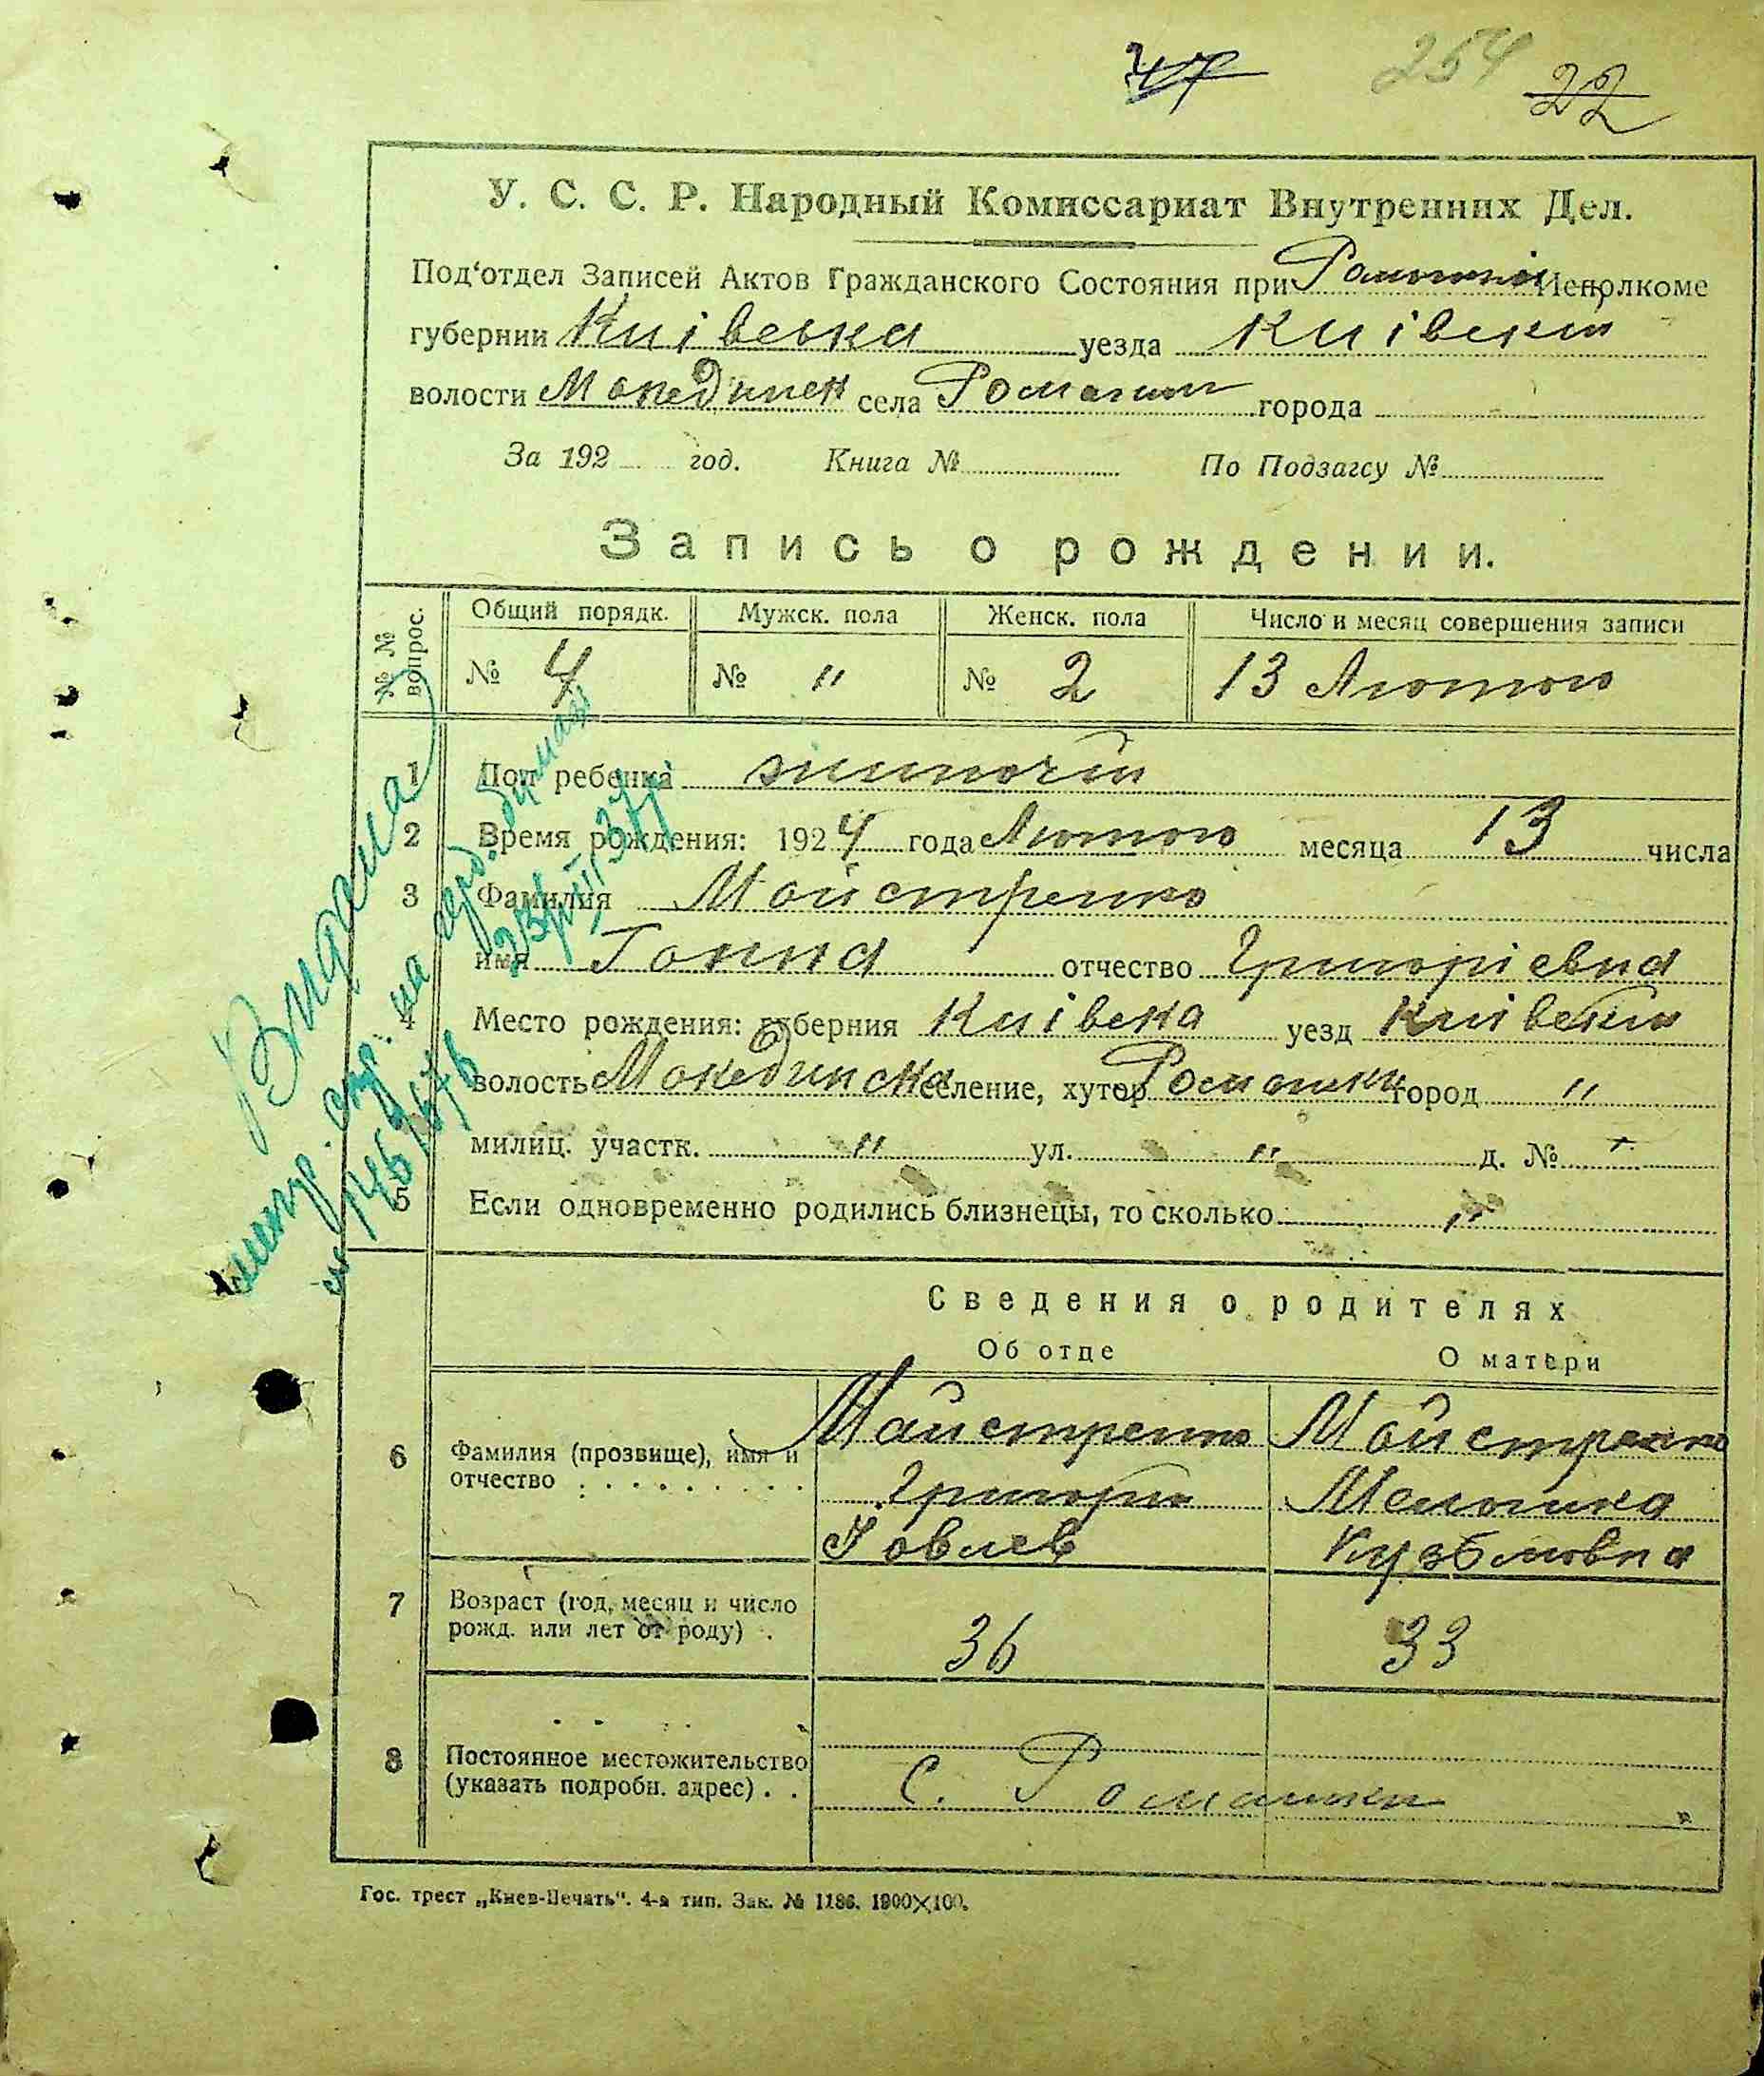 47 254 22
У. С. С. Р. Народный Комиссариат Внутренних Дел.
Под'отдел Записей Актов Гражданского Состояния при Исполкоме
губернии Київська уезда Київськ
волости села Ромашки города
За 192 год. Книга № По Подзагсу №
Запись о рождении.
№ № вопрос. Общий порядк. Мужск. пола Женск. пола Число и месяц совершения записи
№ 4 № " № 2 13 Лютого
1 Пол ребенка жиночий
2 Время рождения: 1924 года Лютого месяца 13 числа
3 Фамилия Майстренко
имя Ганна отчество Григоріевна
4 Место рождения: губерния Київська уезд Київськ
волость Макединска селение, хутор Ромашки город "
милиц. участк. " ул. " д. № "
5 Если одновременно родились близнецы, то сколько "
Видана
Сведения о родителях
Об отце О матери
6 Фамилия (прозвище), имя и отчество Майстренко Майстренко
Григорій Меланка
Іовлев Кузьмовна
7 Возраст (год, месяц и число рожд. или лет от роду) 36 33
8 Постоянное местожительство (указать подробн. адрес) с. Ромашки
Гос. трест „Киев-Печать". 4-я тип. Зак. № 1186. 1900×100.